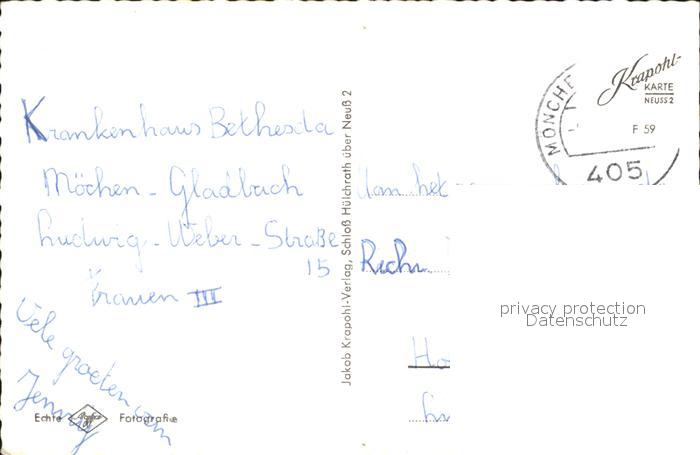 Krankenhaus Bethesda
Möchen - Gladbach
Ludwig - Weber - Straße
15
Frauen III
Vele groeten van
Jenny
Echte Agfa Fotografie
Jakob Krapohl-Verlag, Schloß Hülchrath über Neuß 2
MÖNCHE
405
Krapohl-
KARTE
NEUSS 2
F 59
het
privacy protection
Datenschutz
Ho